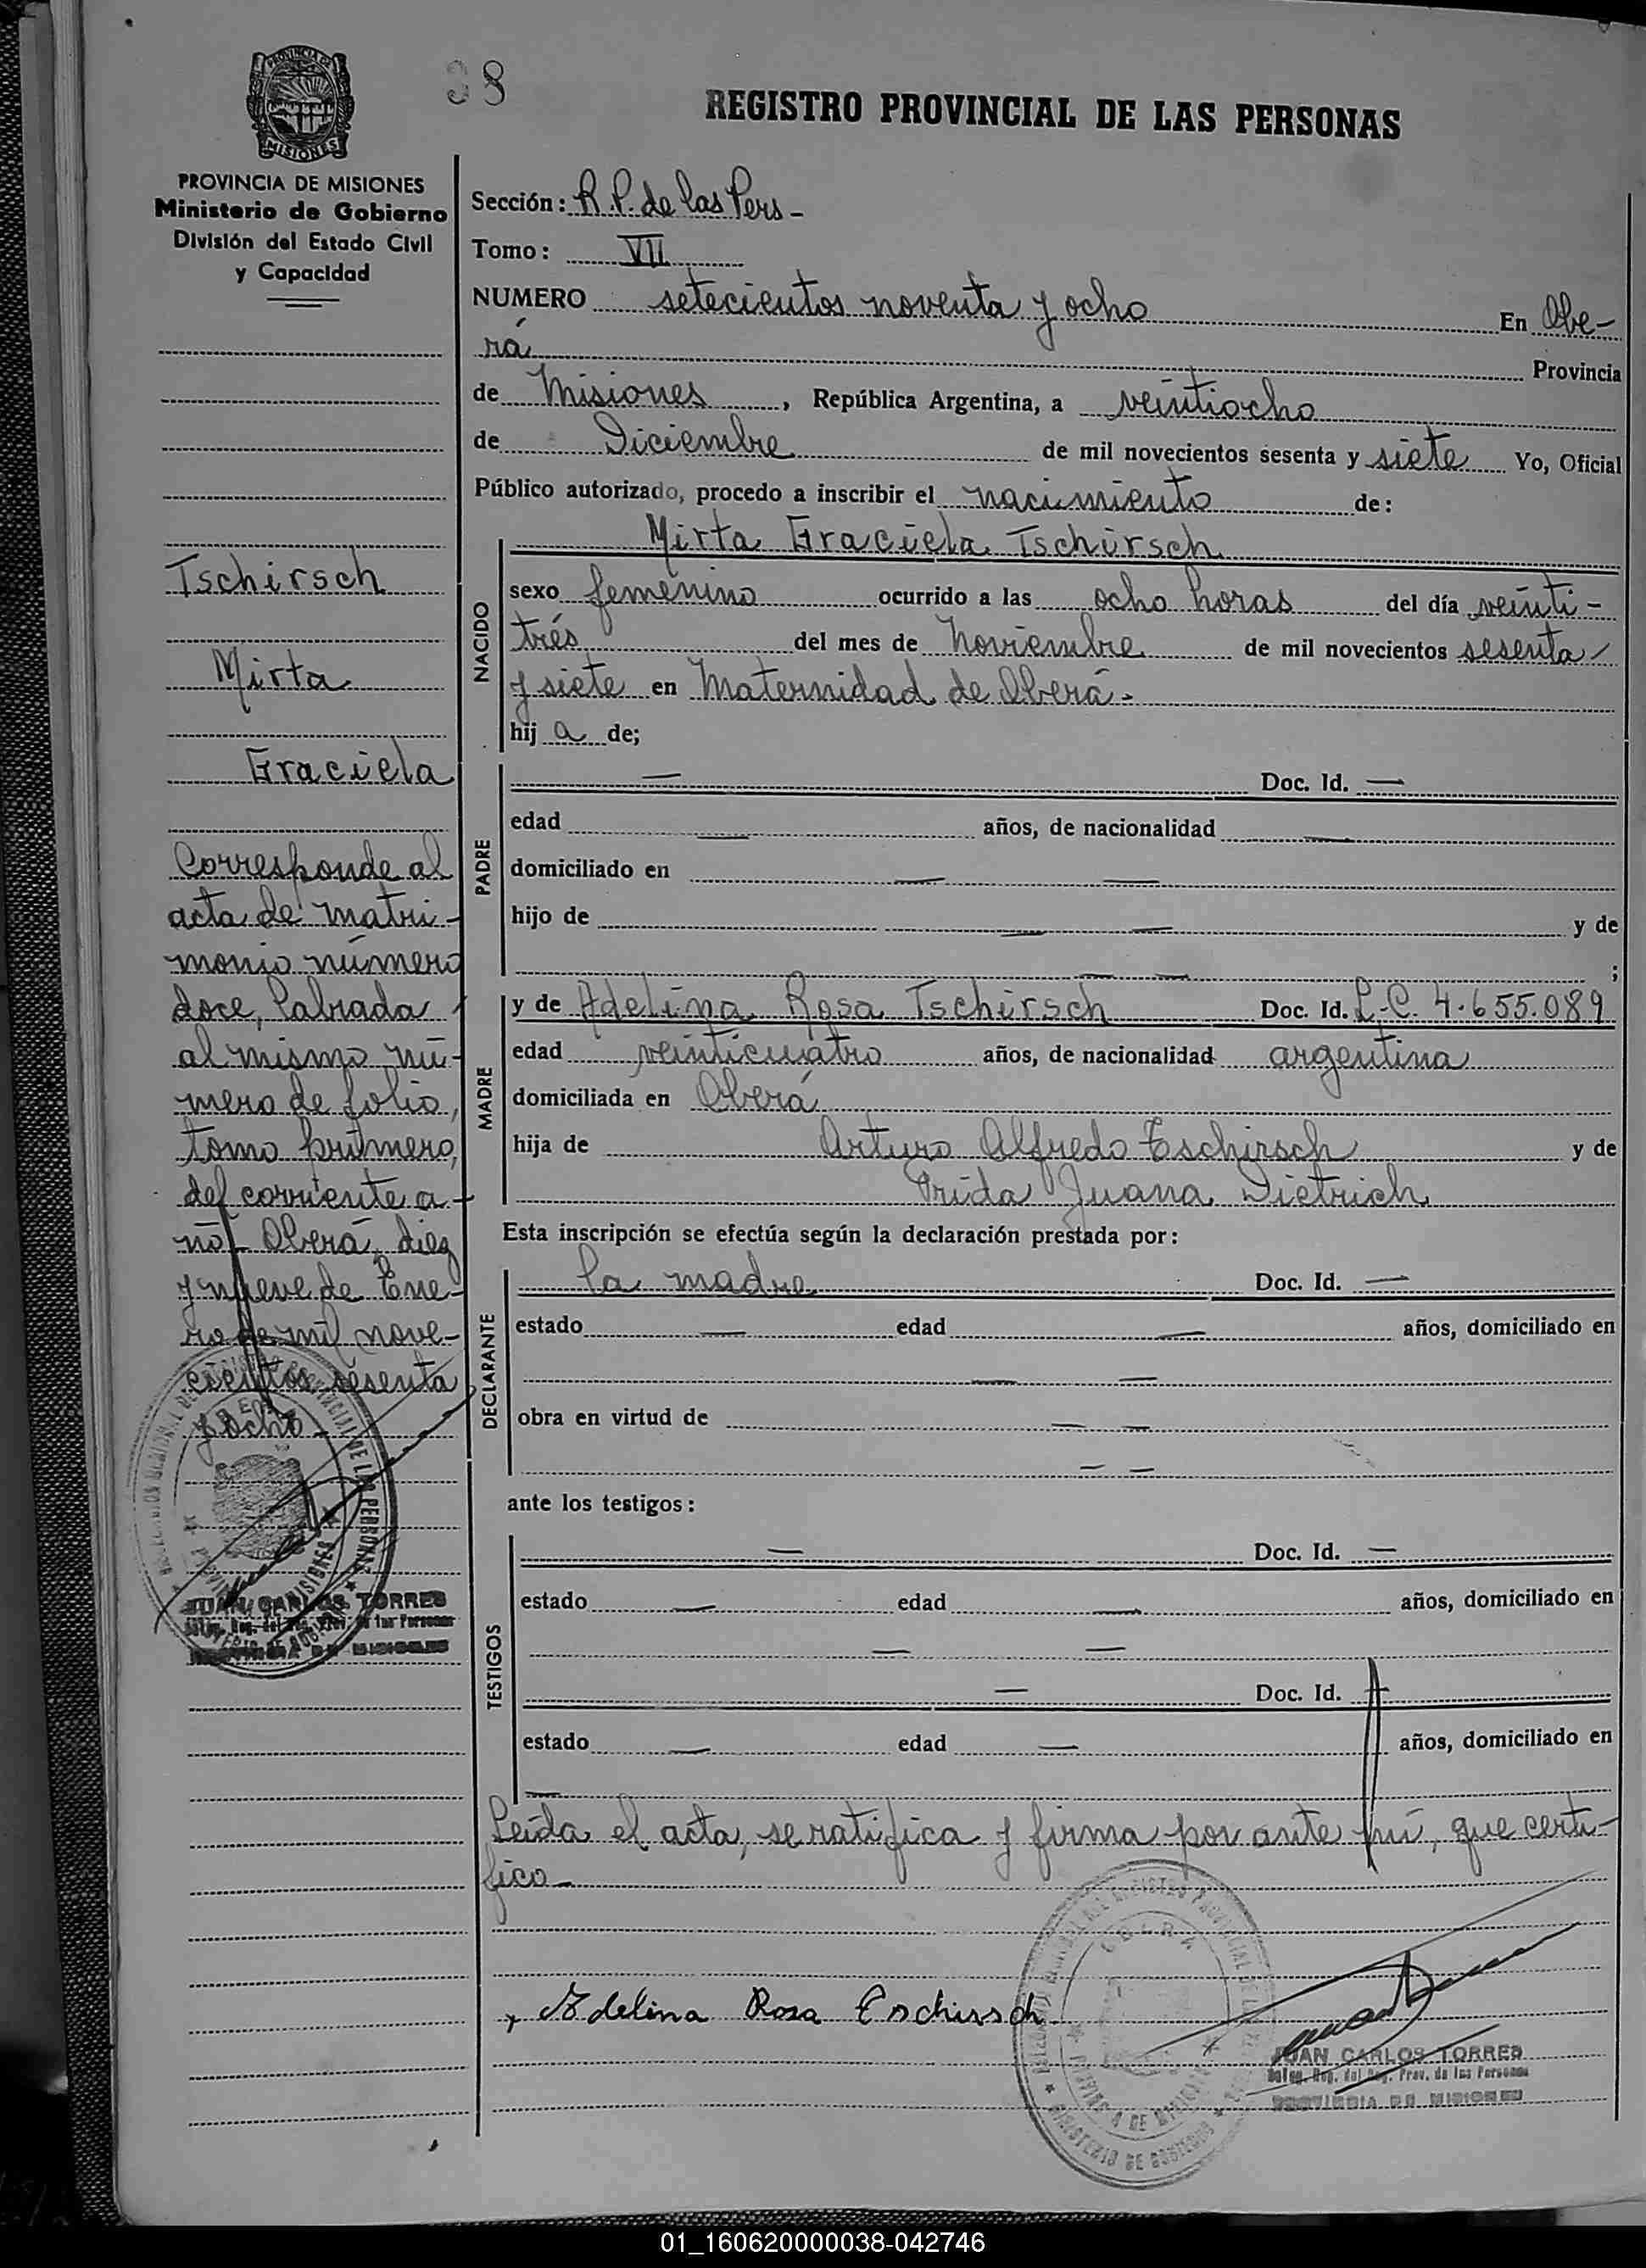 38
REGISTRO PROVINCIAL DE LAS PERSONAS
PROVINCIA DE
MISIONES
PROVINCIA DE MISIONES
Ministerio de Gobierno
División del Estado Civil
y Capacidad
Tschirsch
Mirta
Graciela
Corresponde al
acta de matri-
monio número
doce, labrada
al mismo nú-
mero de folio,
tomo primero,
del corriente a-
ño - Oberá, diez
y nueve de Ene-
ro de mil nove-
cientos sesenta
y ocho -
JUAN CARLOS TORRES
Sección: R.P. de las Pers -
Tomo: VII
NUMERO setecientos noventa y ocho En Obe-
rá Provincia
de Misiones, República Argentina, a veintiocho
de Diciembre de mil novecientos sesenta y siete Yo, Oficial
Público autorizado, procedo a inscribir el nacimiento de:
NACIDO
Mirta Graciela Tschirsch
sexo femenino ocurrido a las ocho horas del día veinti-
trés del mes de Noviembre de mil novecientos sesenta
y siete en Maternidad de Oberá -
hij a de;
PADRE
— Doc. Id. —
edad — años, de nacionalidad —
domiciliado en — —
hijo de — — y de
— — ;
MADRE
y de Adelina Rosa Tschirsch Doc. Id. L-C. 4.655.089
edad veinticuatro años, de nacionalidad argentina
domiciliada en Oberá
hija de Arturo Alfredo Tschirsch y de
Frida Juana Dietrich
Esta inscripción se efectúa según la declaración prestada por:
DECLARANTE
la madre Doc. Id. —
estado — edad — años, domiciliado en
— —
obra en virtud de — —
— —
ante los testigos:
TESTIGOS
— Doc. Id. —
estado — edad — años, domiciliado en
— —
— Doc. Id. —
estado — edad — años, domiciliado en
—
Leída el acta, se ratifica y firma por ante mí, que certi-
fico -
Adelina Rosa Tschirsch
JUAN CARLOS TORRES
Deleg. Reg. del Reg. Prov. de las Personas
PROVINCIA DE MISIONES
01_160620000038-042746